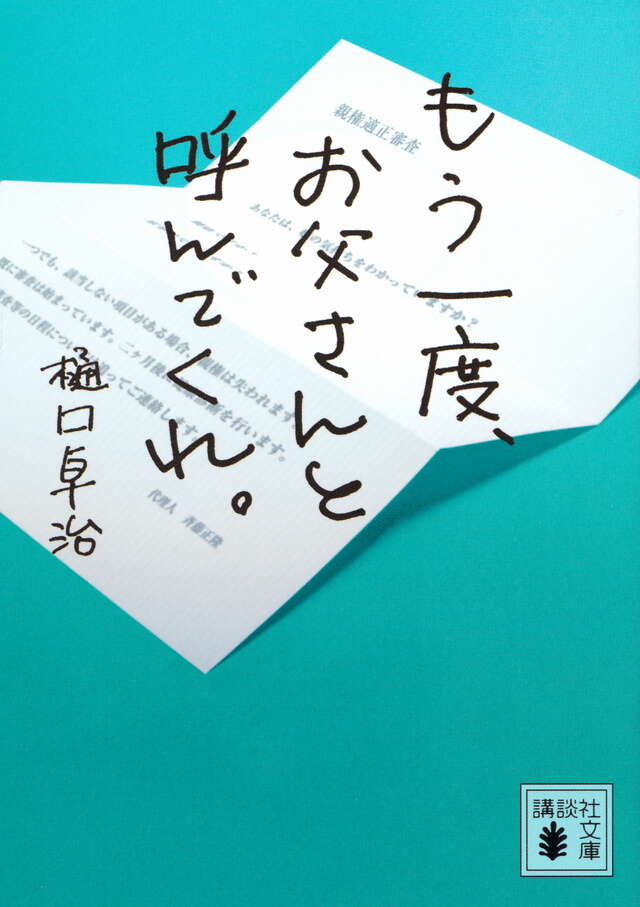 もう一度、
お父さんと
呼んでくれ。
樋口卓治
親権適正審査
あなたは、
の気持ちをわかっていますか？
一つでも、該当しない項目がある場合、親権は失われます。
審査は始まっています。二ヶ月後
断を行います。
等の日程につ
ってご連絡します
代理人 斉藤正隆
講談社
文庫